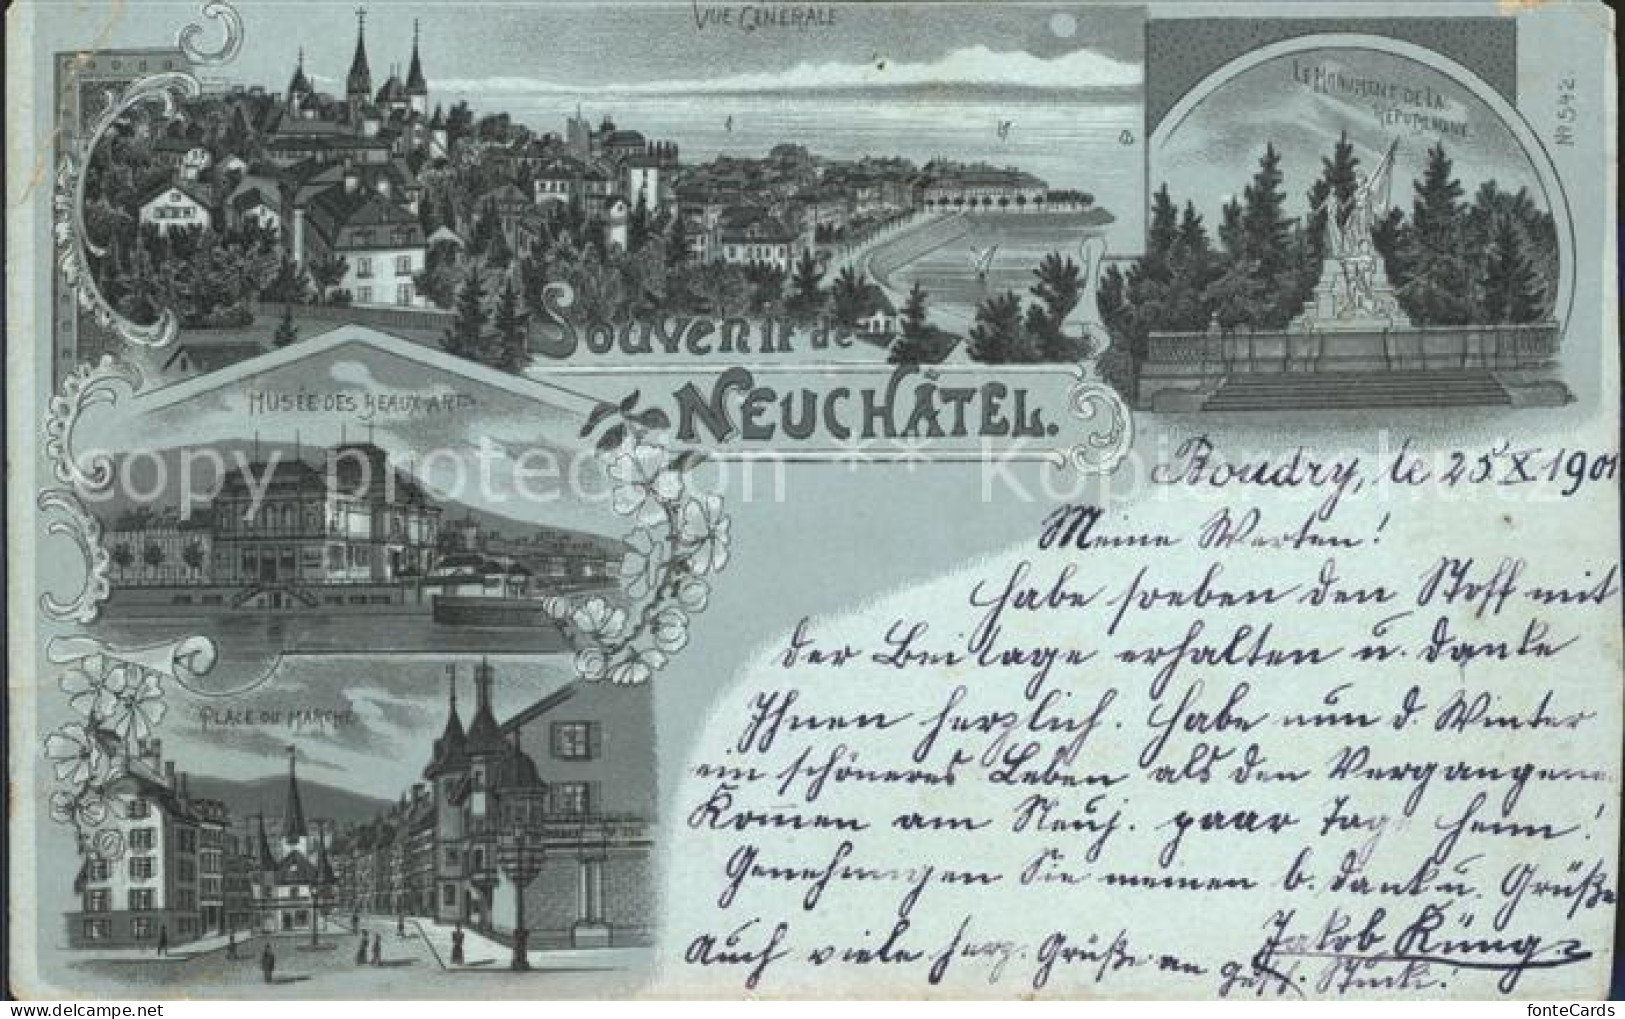 VUE GÉNÉRALE
LE MONUMENT DE LA
RÉPUBLIQUE.
No 542.
Souvenir de
NEUCHÂTEL.
MUSÉE DES BEAUX-ARTS
PLACE DU MARCHÉ
copy protection ** Kopierschutz
Boudry, le 25 X 1901
Meine Werten!
Habe soeben den Stoff mit
der Beilage erhalten u. danke
Ihnen herzlich. Habe nun d. Winter
ein schöneres Leben als den Vergangenen
Kommen am Neuj. paar Tage heim!
Genehmigen Sie meinen b. Dank u. Grüße
Jakob Küng
Auch viele herz. Grüße an
fonteCards